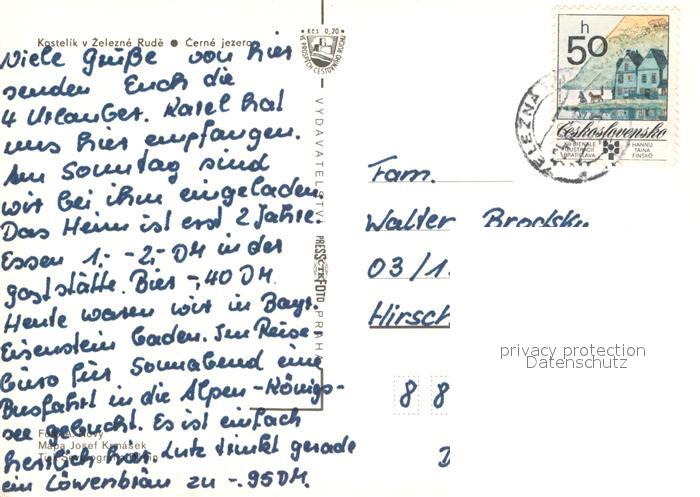 Kostelík v Železné Rudě ● Černé jezero
Kčs 0,20
VE PROSPĚCH ČESTOVNÍHO RUCHU
Viele Grüße von hier
senden Euch die
4 Urlauber. Karel hat
uns hier empfangen.
Am Sonntag sind
wir bei ihm eingeladen.
Das Heim ist erst 2 Jahre.
Essen 1,- -2,- DM in der
gaststätte. Bier -,40 DM.
Heute waren wir in Bayr.
Eisenstein baden. Im Reise-
büro für Sonnabend eine
Busfahrt in die Alpen-Königs-
see gebucht. Es ist einfach
herrlich hier. Lutz trinkt gerade
ein Löwenbräu zu -.95 DM.
Mapa Josef
VYDAVATELSTVÍ PRESSFOTO PRAHA
h
50
Československo
XI BIENÁLE
ILUSTRACÍ
BRATISLAVA
HANNU
TAINA
FINSKO
ŽELEZNÁ
Fam.
Walter Brodsky
03/1.
Hirsch
8 8
D
privacy protection
Datenschutz